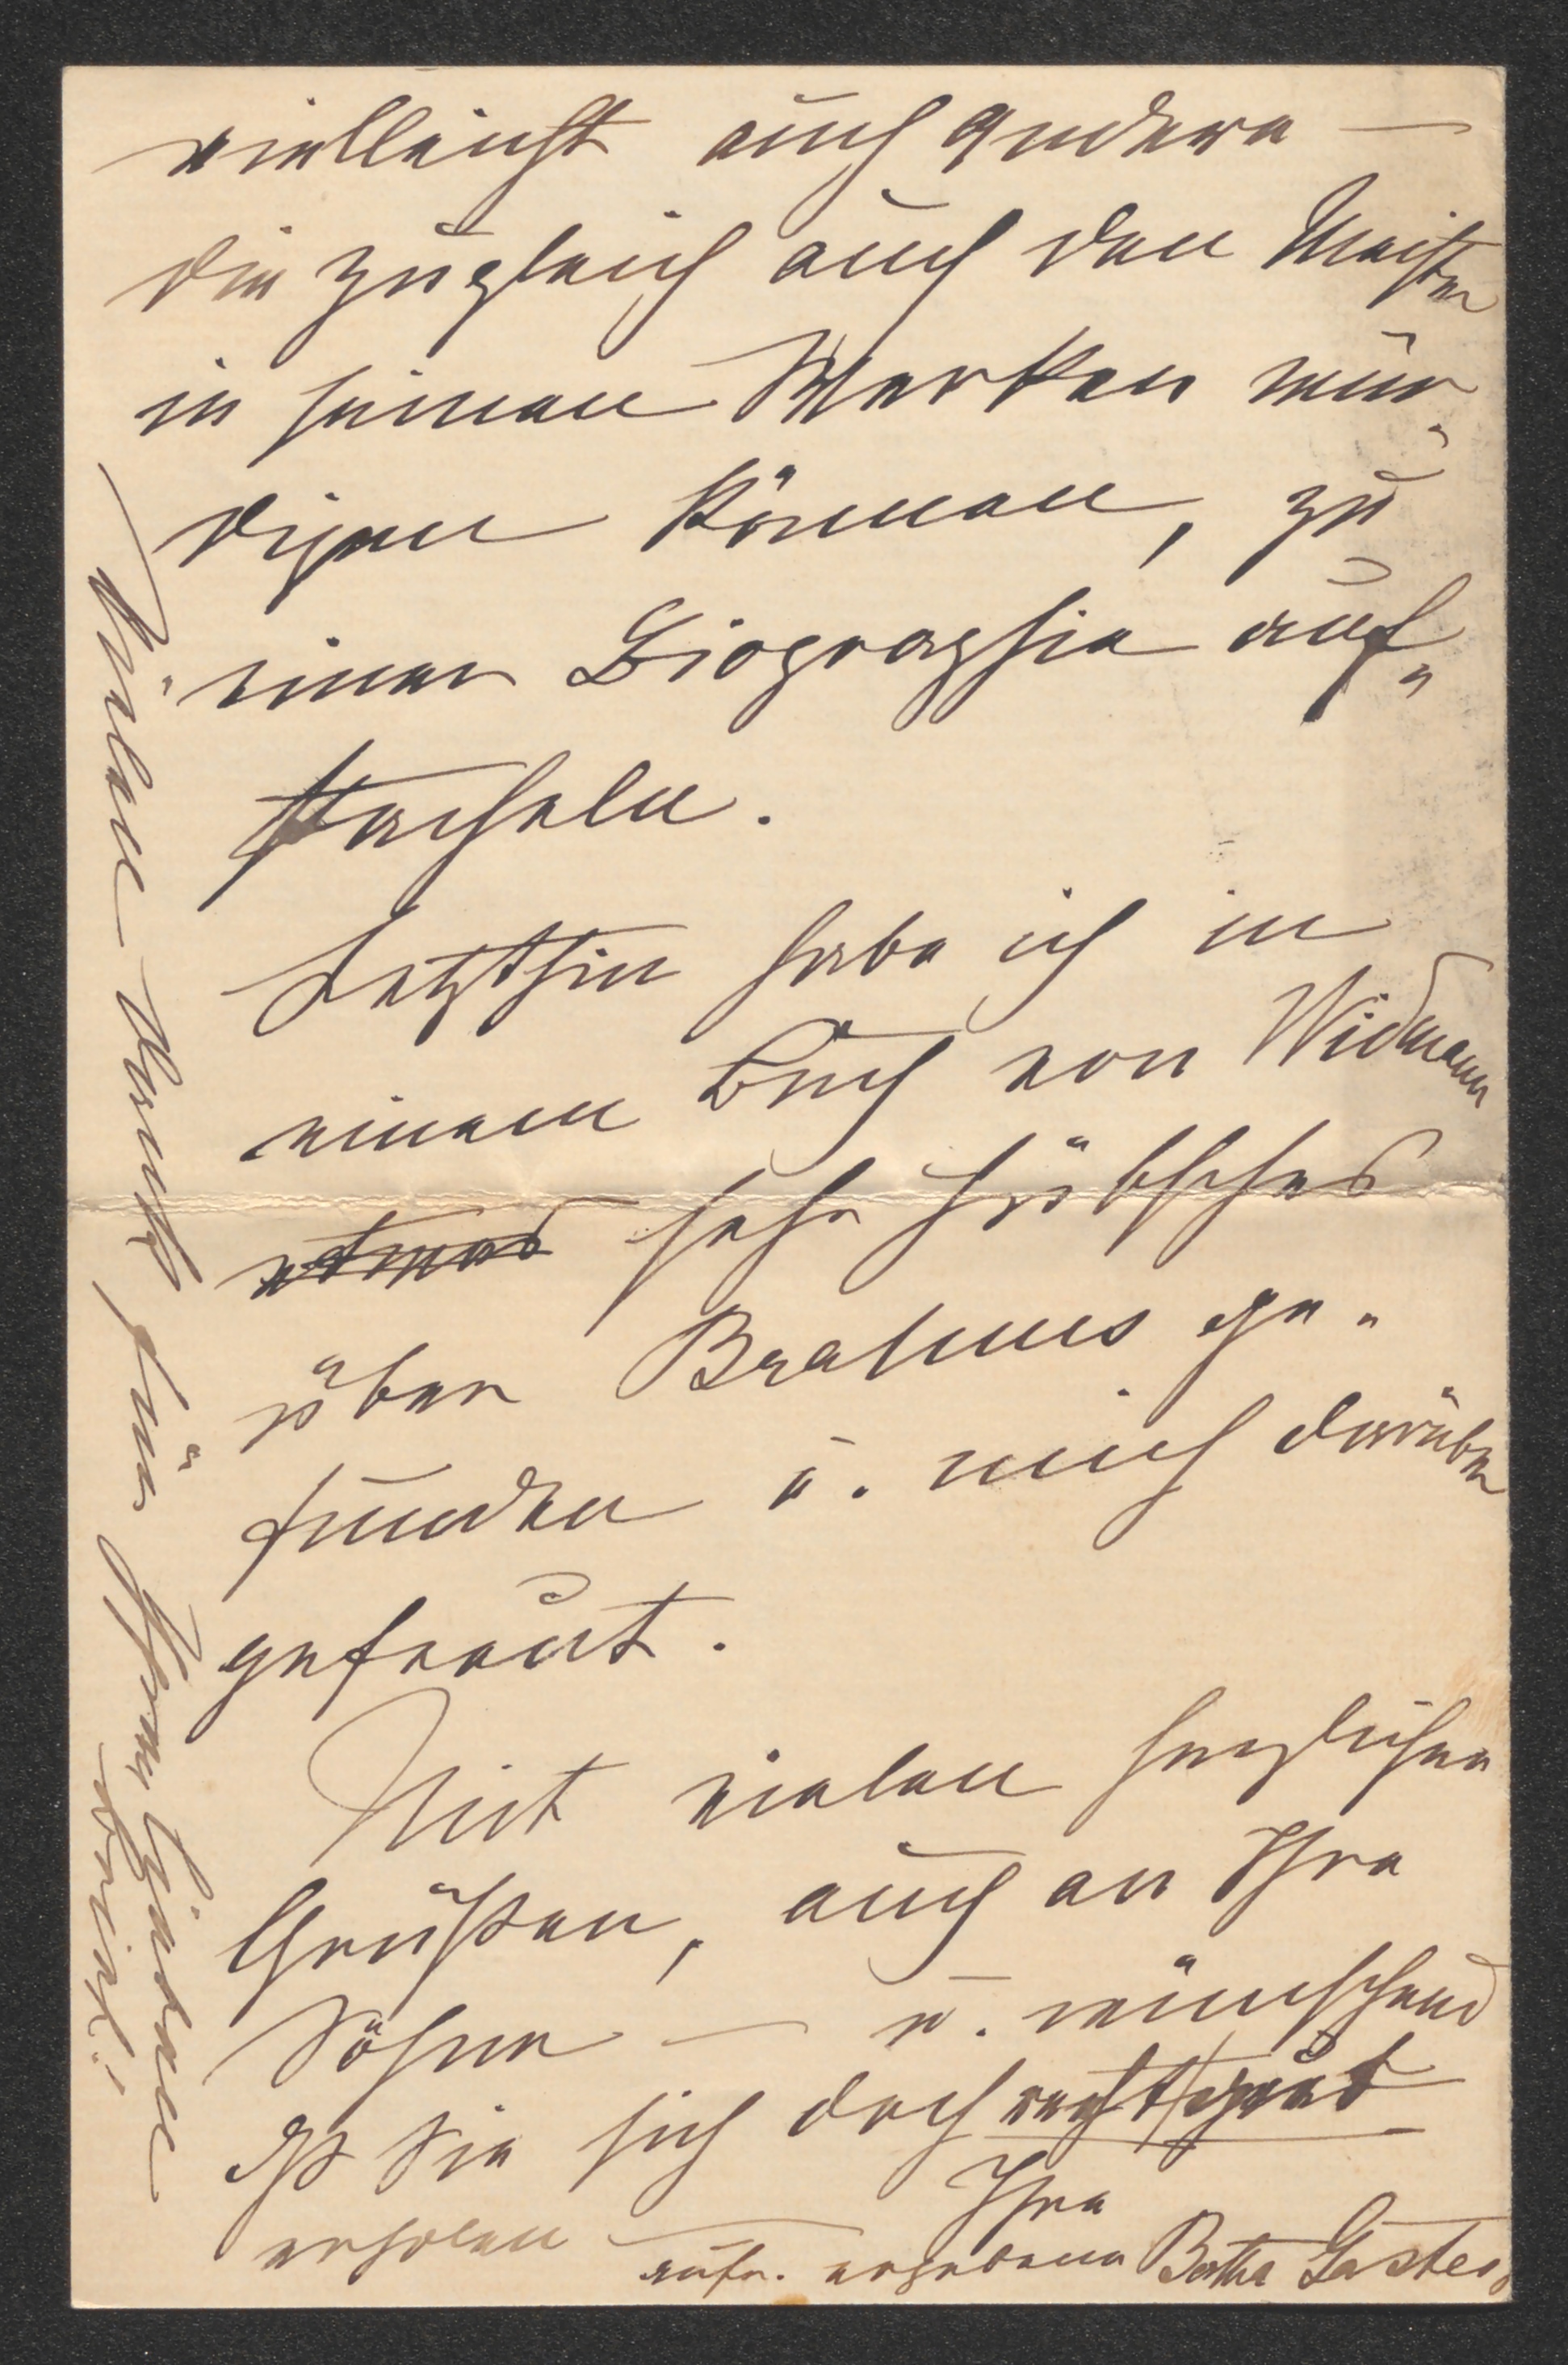 vielleicht auch Andere —
die zugleich auch den Meister
in seinen Werken wür-
digen können, zu
einer Biographie auf-
stacheln.
Letzthin habe ich in
einem Buch von Widmann
etwas sehr hübsches
über Brahms ge-
funden u. mich darüber
gefreut.
Mit vielen herzlichen
Grüßen, auch an Ihre
Söhne — u. wünschend
daß Sie sich doch recht gut
erholen — Ihre
aufr. ergebene Bertha Gasteiger
Vielen Dank für Ihren lieben
Brief!